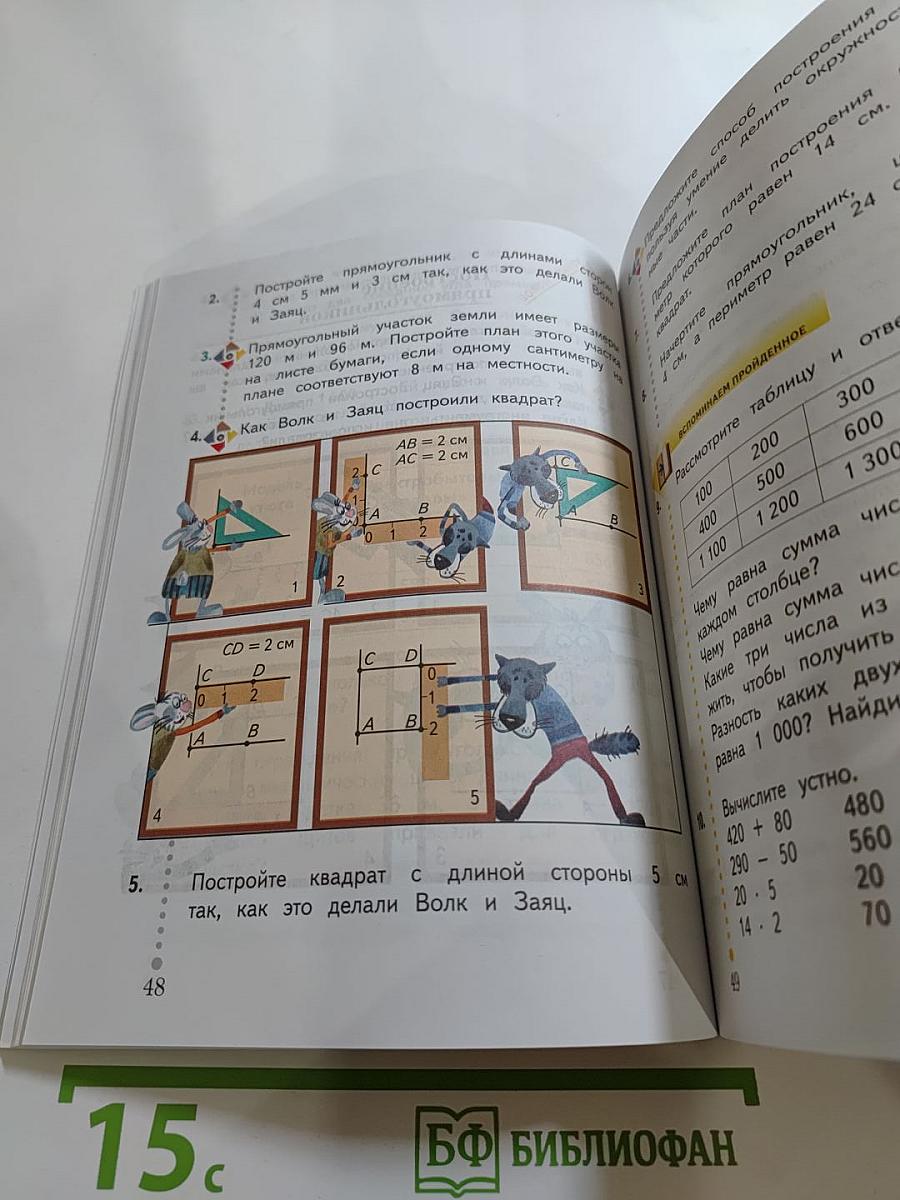 2. Постройте прямоугольник с длинами сторон
4 см 5 мм и 3 см так, как это делали Волк
и Заяц.
3. Прямоугольный участок земли имеет размеры
120 м и 96 м. Постройте план этого участка
на листе бумаги, если одному сантиметру на
плане соответствуют 8 м на местности.
4. Как Волк и Заяц построили квадрат?
1
AB = 2 см
AC = 2 см
2 C
1
A B
0 1 2
2
C
A B
3
CD = 2 см
C D
0 1 2
A B
4
C D
0
1
A B 2
5
5. Постройте квадрат с длиной стороны 5 см
так, как это делали Волк и Заяц.
48
Предложите способ построения
пользуя умение делить окружность
ные части.
Предложите план построения
метр которого равен 14 см.
Начертите прямоугольник,
4 см, а периметр равен 24
квадрат.
ВСПОМИНАЕМ ПРОЙДЕННОЕ
9. Рассмотрите таблицу и
100 200 300
400 500 600
1 100 1 200 1 300
Чему равна сумма
каждом столбце?
Чему равна сумма
Какие три числа из
жить, чтобы получить
Разность каких двух
равна 1 000?
10. Вычислите устно.
420 + 80 480
290 − 50 560
20 · 5 20
14 · 2 70
49
15 с
БФ БИБЛИОФАН